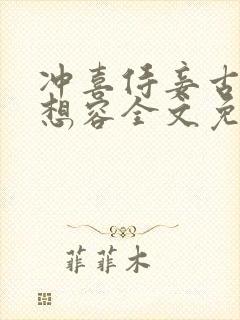 冲喜侍妾古
想容全文免
菲菲木